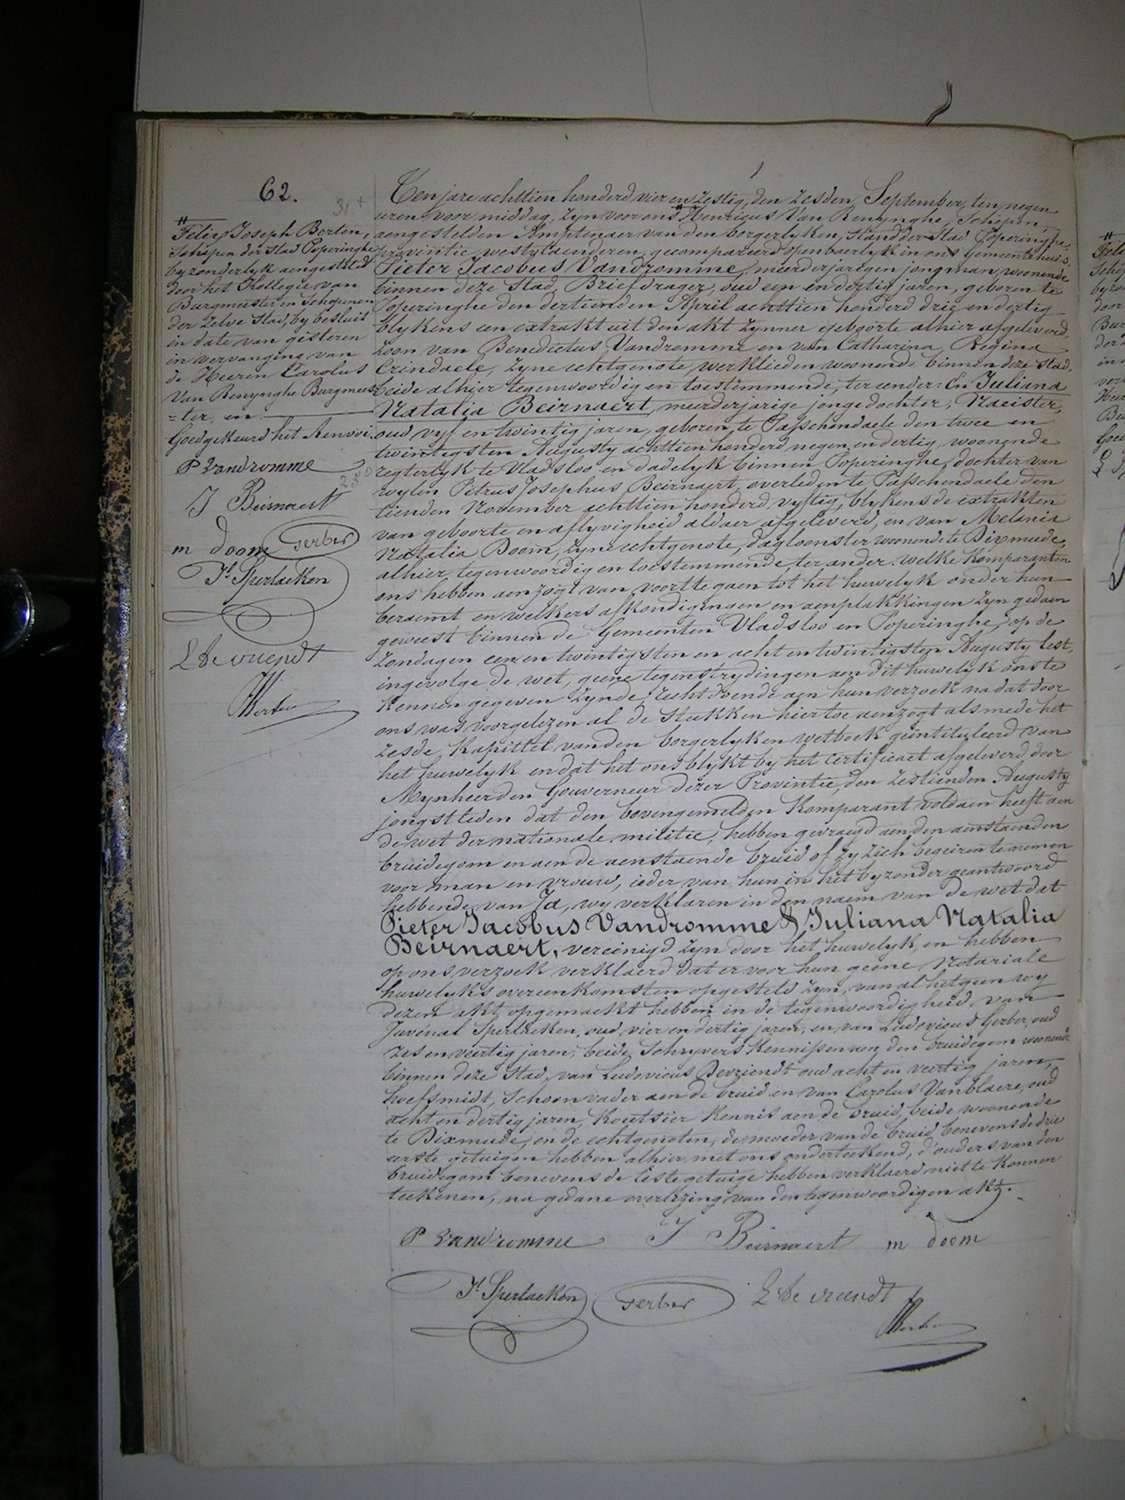 62.
Pieter Joseph Berten,
Schepen der stad Poperinghe
byzonderlyk aengesteld
door het Kollegie van
Burgmeester en Schepenen
der zelve Stad, by besluit
in date van gisteren
in vervanging van
de Heeren Carolus
Van Renynghe Burgmees
=ter, en
Goedgekeurd het Renvoi.
P Vandromme
J Beirnaert
m doom Gerber
Jl Sperlaeken
L De vriendt
Ten jare achttien honderd vier en zestig, den zesden September, ten negen
uren voor middag, zyn voor ons # Henricus Van Renynghe, Schepen,
aengestelden Amptenaer van den borgerlyken stand der stad Poperinghe,
provintie westvlaenderen, gecompareerd openbaerlyk in ons Gemeentehuis,
Pieter Jacobus Vandromme, meerderjarigen jongman, woonende
binnen deze Stad, Briefdrager, oud een en dertig jaren, geboren te
Poperinghe den dertienden April achttien honderd drie en dertig
blykens een extrakt uit den akt zynner geboorte alhier afgeleverd,
zoon van Benedictus Vandromme en van Catharina Regina
Crindaele, zyne echtgenote, werklieden woonende binnen deze stad,
beide alhier tegenwoordig en toestemmende, ter eender: En Juliana
Natalia Beirnaert, meerderjarige jongedochter, Naeister,
oud vyf en twintig jaren, geboren te Passchendaele den twee en
twintigsten Augusty achttien honderd negen en dertig, woonende
regterlyk te Vladsloo en dadelyk binnen Poperinghe, dochter van
wylen Petrus Josephus Beirnaert, overleden te Passchendaele den
tienden November achttien honderd vyftig, blykens de extrakten
van geboorte en aflyvigheid aldaer afgeleverd, en van Melania
Natalia Doom, zyne echtgenote, dagloonster woonende te Dixmude,
alhier tegenwoordig en toestemmende, ter ander. welke Komparanten
ons hebben aenzogt van voortte gaen tot het huwelyk onder hun
beraemt en welkers afkondigingen en aenplakkingen zyn gedaen
geweest binnen de Gemeenten Vladsloo en Poperinghe, op de
zondagen een en twintigsten en acht en twintigsten Augusty lest,
ingevolge de wet, geene tegenstrydingen aen dit huwelyk ons te
Kennen gegeven zynde, recht doende aen hun verzoek na dat door
ons was voorgelezen al de stukken hiertoe aenzogt als mede het
zesde Kapittel van den borgerlyken wetboek geintituleerd van
het huwelyk en dat het ons blykt by het certificaet afgeleverd door
Mynheer den Gouverneur dezer Provintie, den zestienden Augusty
jongstleden dat den bovengemelden Komparant voldaen heeft aen
de wet der nationale militie, hebben gevraegd aen den aenstaenden
bruidegom en aen de aenstaende bruid of zy zich begeiren te nemen
voor man en vrouw, ieder van hun in het byzonder geantwoord
hebbende van Ja, wy verklaren in den naem van de wet dat
Pieter Jacobus Vandromme & Juliana Natalia
Beirnaert, vereenigd zyn door het huwelyk en hebben
op ons verzoek verklaerd dat er voor hun geene Notariale
huwelyks overeenkomsten opgesteld zyn, van al hetgeen wy
dezen akt opgemaekt hebben in de tegenwoordigheid van
Juvenal Sperlaeken, oud vier en dertig jaren, en van Ludovicus Gerber, oud
zes en veertig jaren, beide Schryvers Kennissen aen den bruidegom woonende
binnen deze Stad, van Ludovicus Devriendt oud acht en veertig jaren,
hoefsmidt, Schoonvader aen de bruid en van Carolus Vanblaere, oud
acht en dertig jaren, Koutsier Kennis aen de bruid, beide woonende
te Dixmude, en de echtgenoten, de moeder van de bruid benevens de drie
eerste getuigen hebben alhier met ons onderteekend, d'ouders van den
bruidegom benevens de leste getuige hebben verklaerd niet te konnen
teekenen, na gedane overlezing van den tegenwoordigen akt.
P Vandromme J Beirnaert m doom
Jl Sperlaeken Gerber L De vriendt